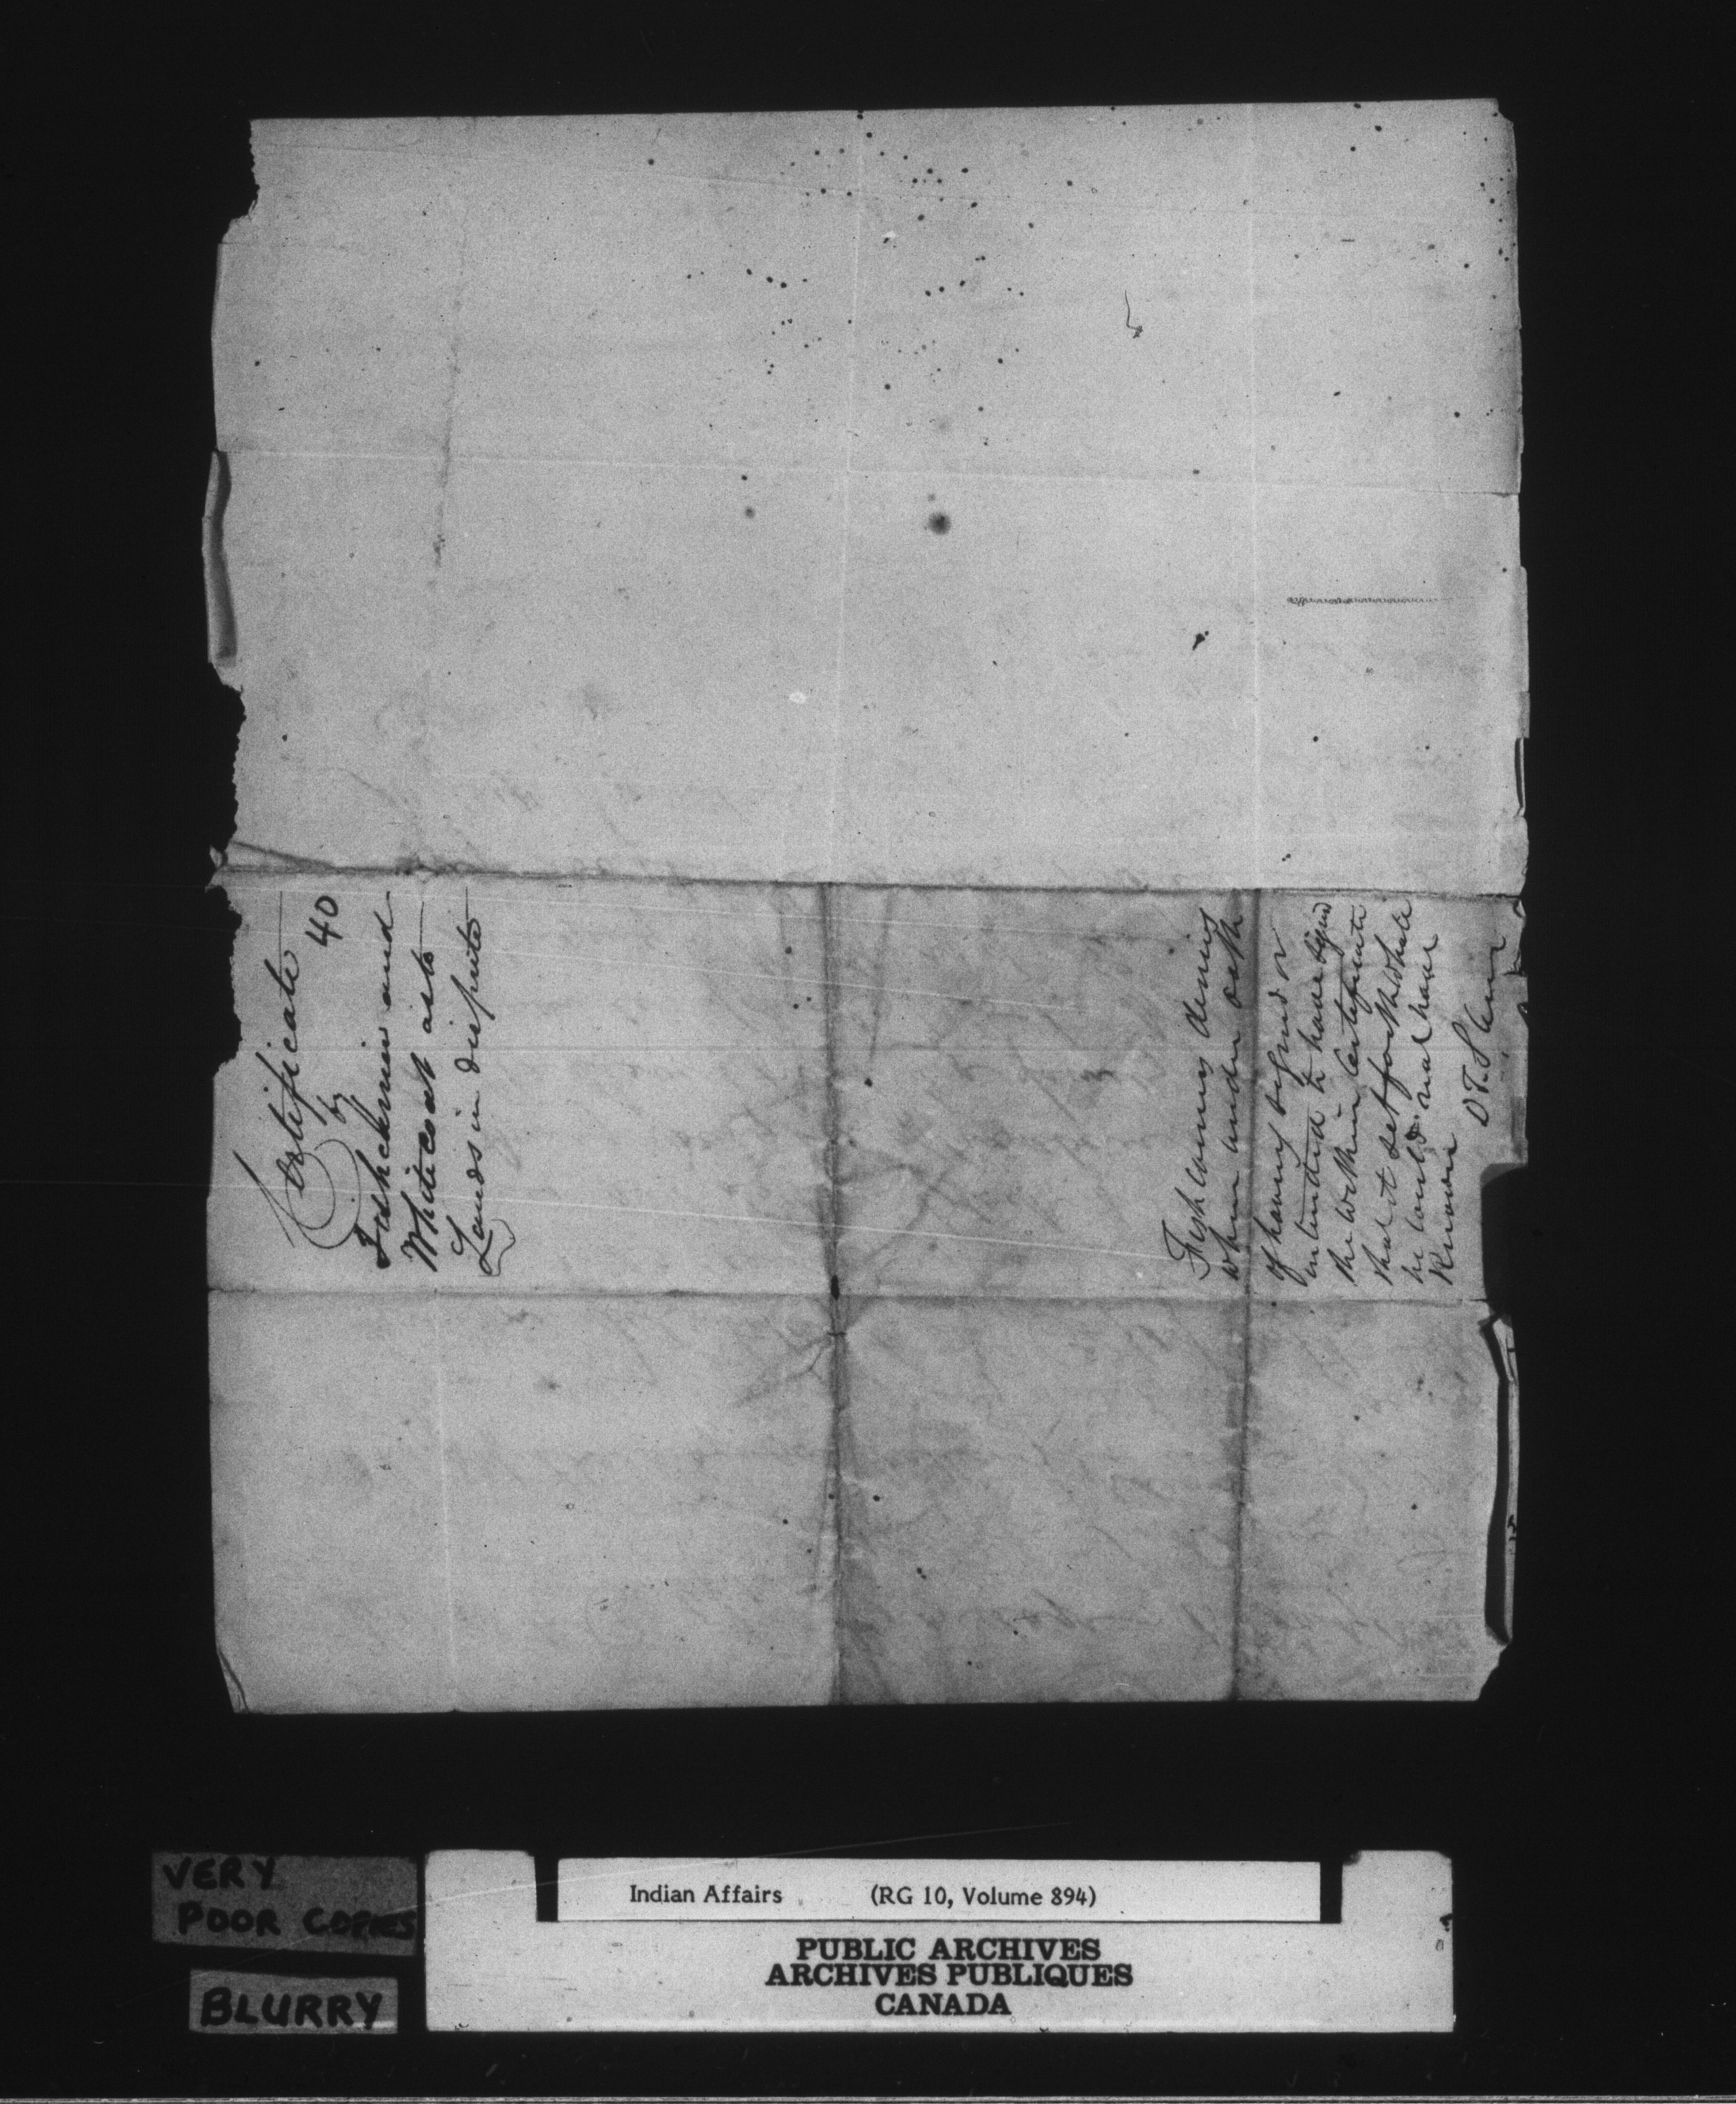 Certificate
40
by
Fishcarrier and
Whitecoat as to
Lands in dispute
Fishcarrier denies
when under oath
of having signed or
intended to have signed
the within Certificate
that it set forth what
he could not have
Known
VERY
POOR COPIES
BLURRY
Indian Affairs (RG 10, Volume 894)
PUBLIC ARCHIVES
ARCHIVES PUBLIQUES
CANADA